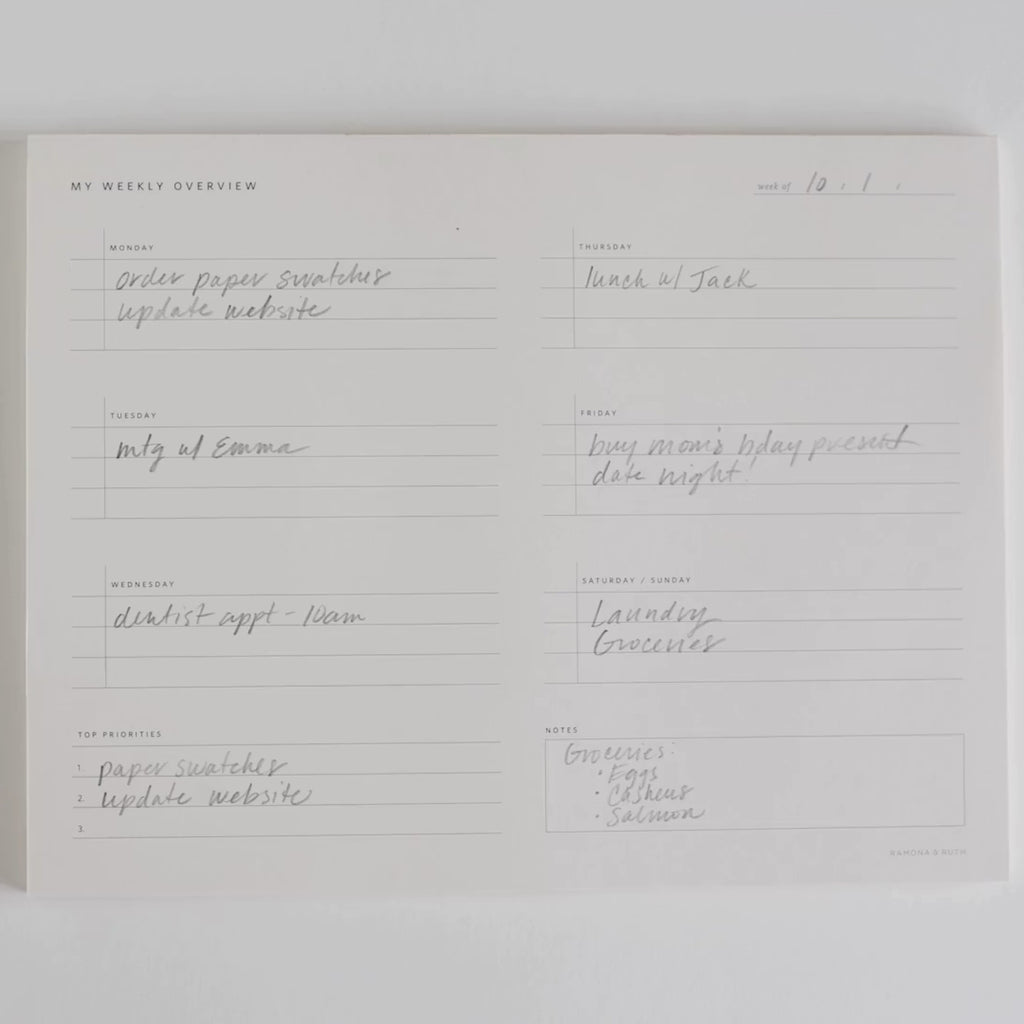 MY WEEKLY OVERVIEW
week of 10 / 1 /
MONDAY
order paper swatches
update website
TUESDAY
mtg w/ Emma
WEDNESDAY
dentist appt - 10am
TOP PRIORITIES
1. paper swatches
2. update website
3.
THURSDAY
lunch w/ Jack
FRIDAY
buy mom's bday present
date night!
SATURDAY / SUNDAY
Laundry
Groceries
NOTES
Groceries:
• Eggs
• Cashews
• Salmon
RAMONA & RUTH